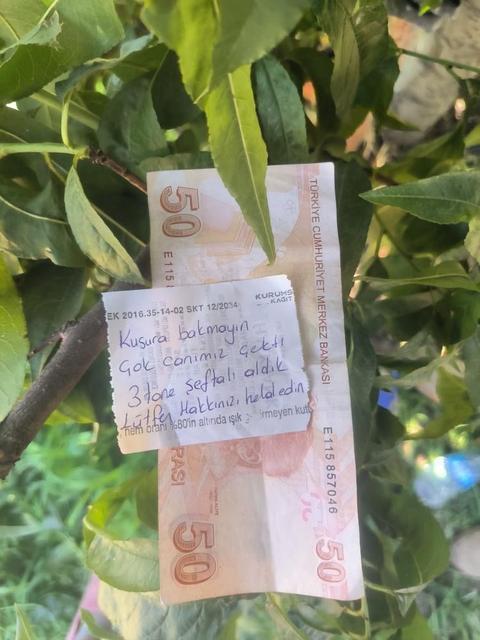 50
TÜRKİYE CUMHURİYET MERKEZ BANKASI
E 115
EK 2016.35-14-02 SKT 12/2034
KURUMS
KAĞIT
Kusura bakmayın
Çok canımız çekti
3 tane şeftali aldık
Lütfen Hakkınızı helal edin
nem oranı %80'in altında ışık girmeyen kut
E 115 857046
RASI
50
50